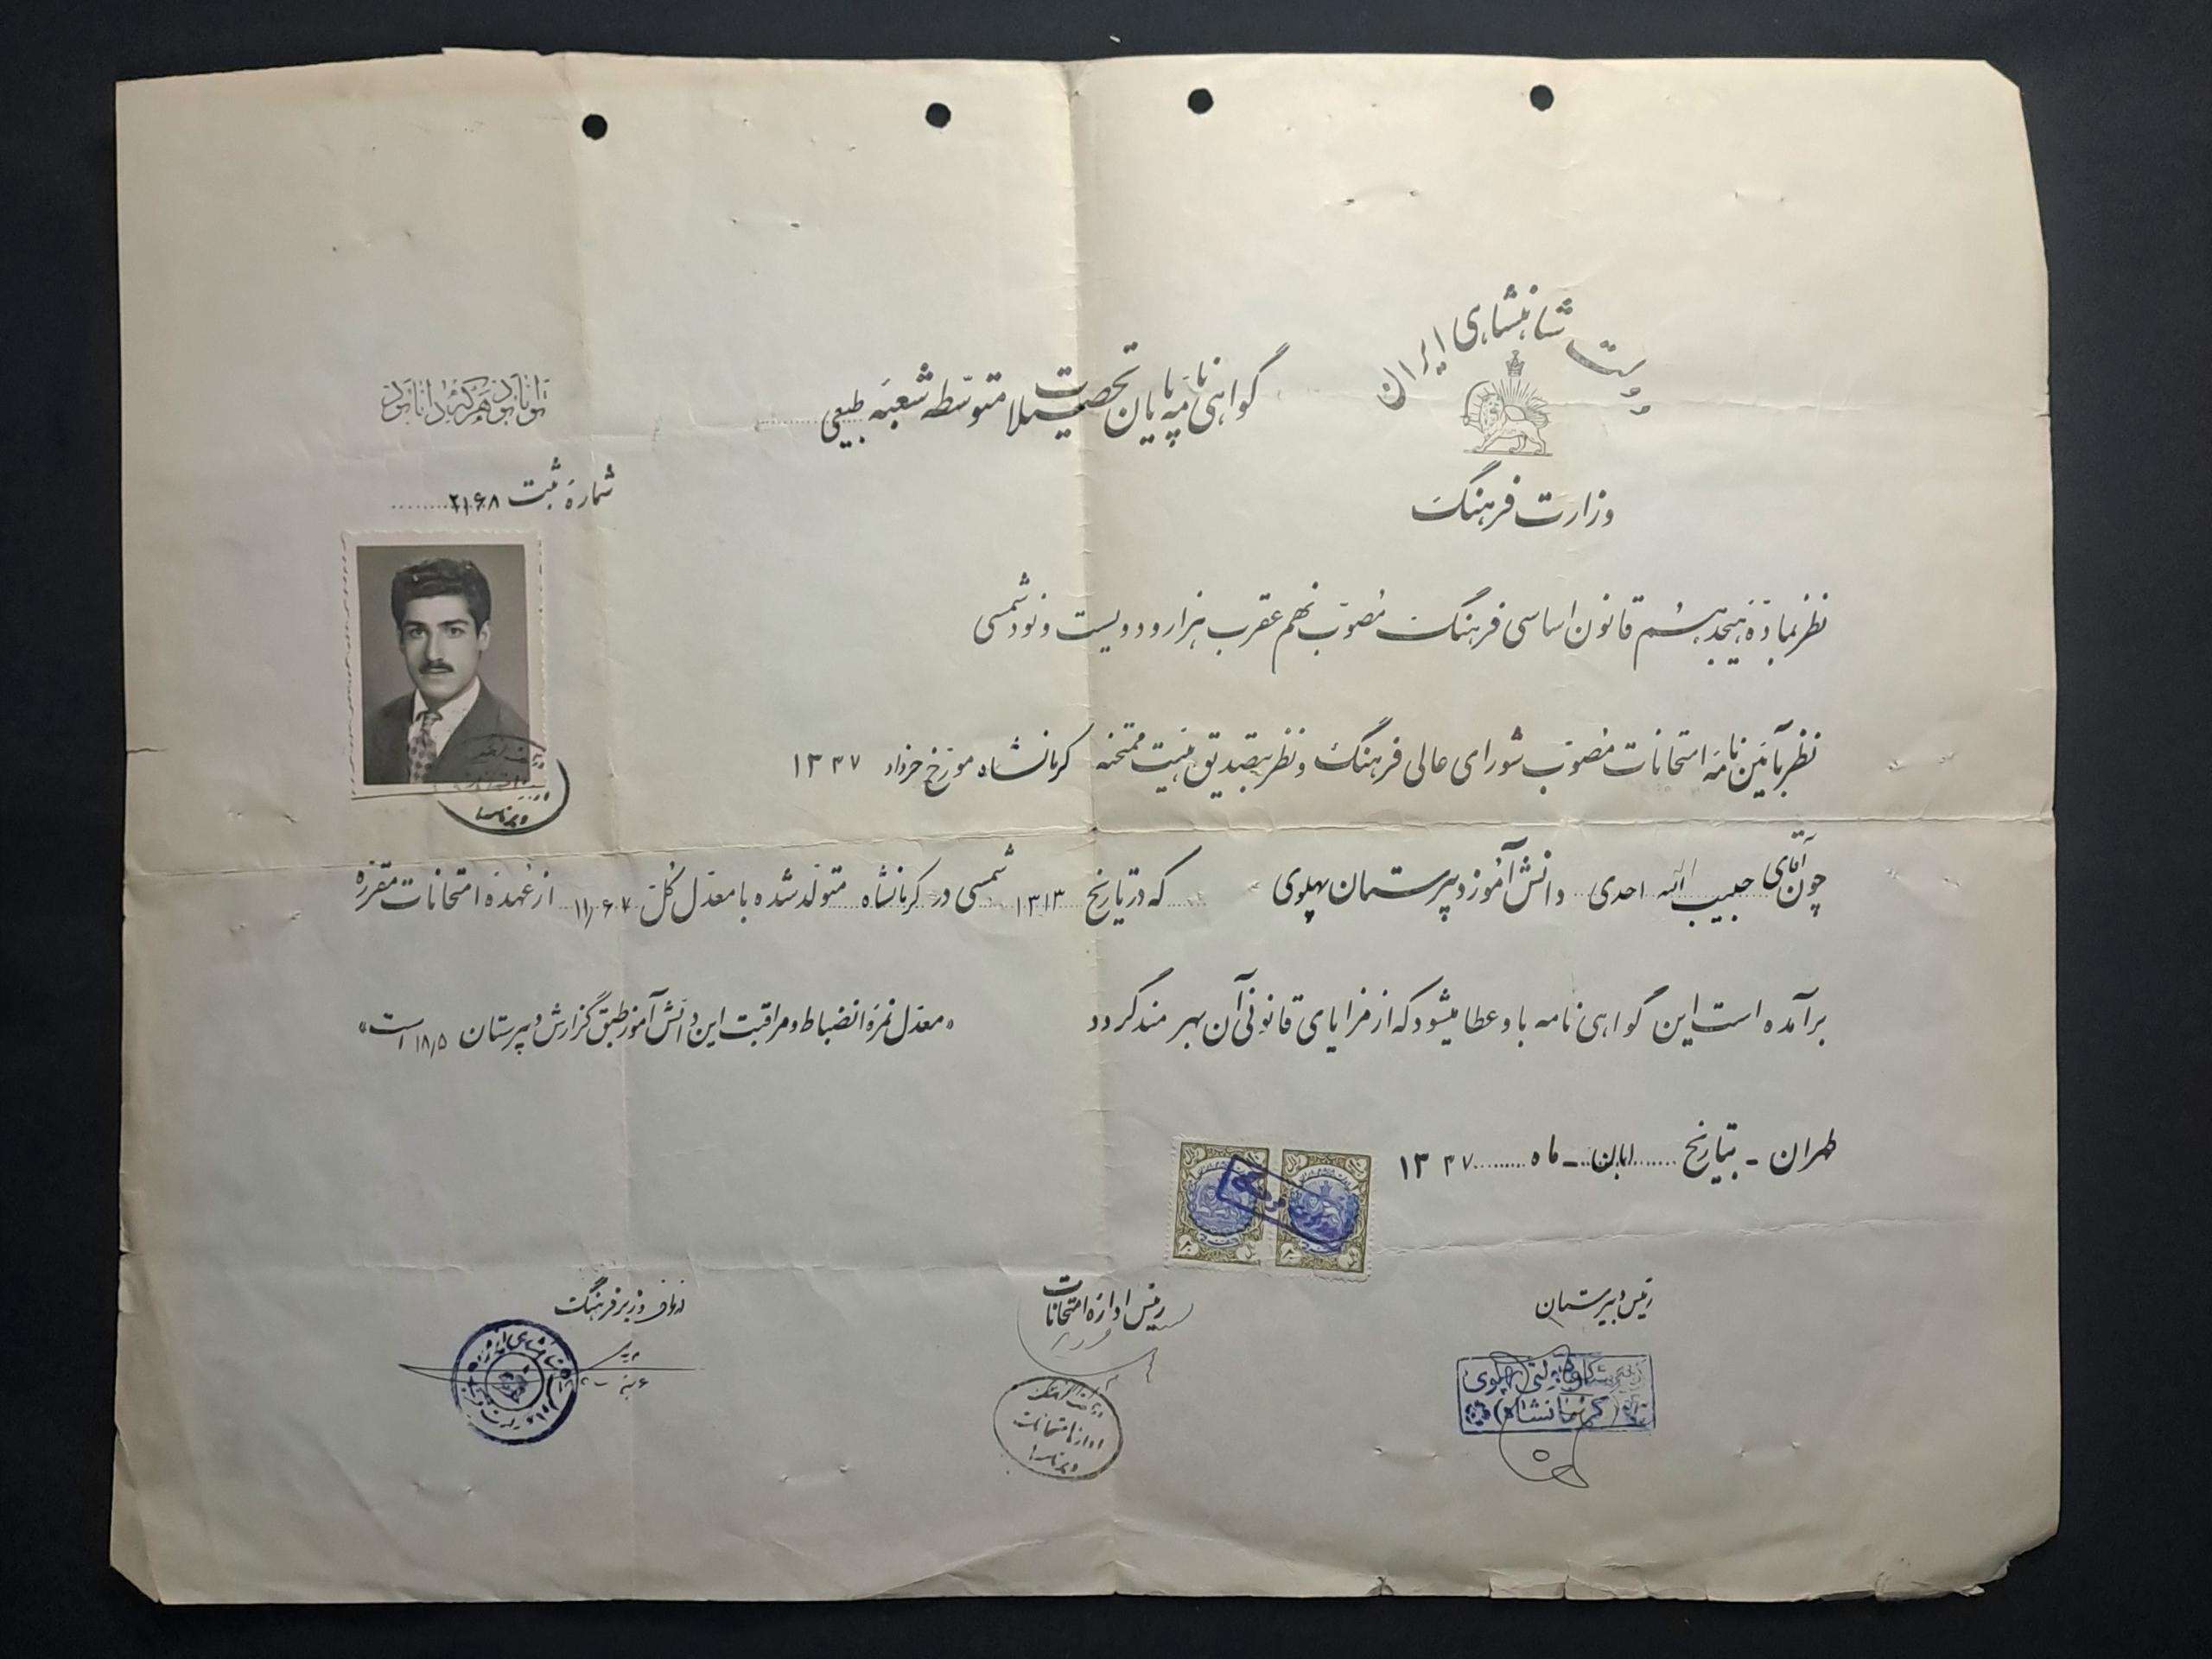 دولت شاهنشاهی ایران
وزارت فرهنگ
گواهی نامه پایان تحصیلات متوسطه شعبه طبیعی
توانا بود هر که دانا بود
شماره ثبت ۲۱۶۸
نظر بماده هیجدهم قانون اساسی فرهنگ مصوب نهم عقرب هزار و دویست و نود شمسی
نظر بآئین نامه امتحانات مصوب شورای عالی فرهنگ و نظر بتصدیق هیئت ممتحنه کرمانشاه مورخ خرداد ۱۳۳۷
چون آقای حبیب اله احدی دانش آموز دبیرستان پهلوی که در تاریخ ۱۳۱۳ شمسی در کرمانشاه متولد شده با معدل کل ۱۱٫۶۷ از عهده امتحانات مقرره
برآمده است این گواهی نامه باو عطا میشود که از مزایای قانونی آن بهره مند گردد «معدل نمره انضباط و مراقبت این دانش آموز طبق گزارش دبیرستان ۱۸٫۵ است»
طهران - بتاریخ ابان ماه ۱۳۳۷
رئیس دبیرستان
رئیس اداره امتحانات
از طرف وزیر فرهنگ
پهلوی
(کرمانشاه)
اداره امتحانات